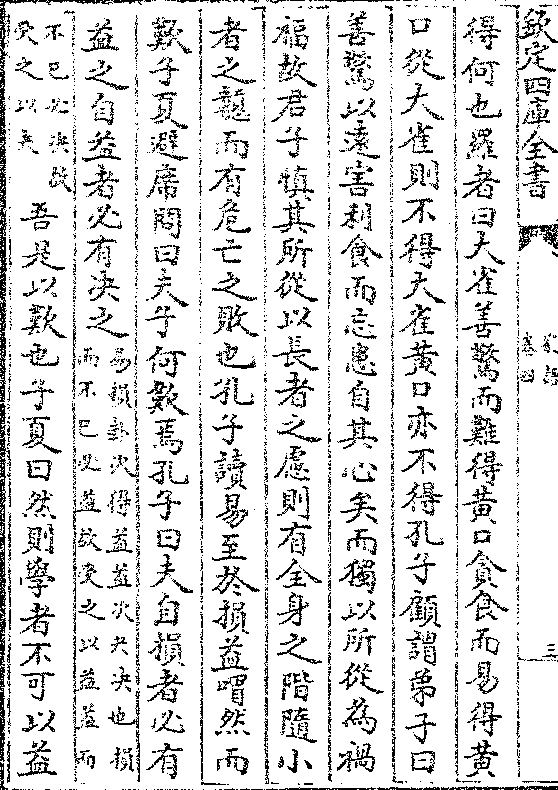 欽定四庫全書
家語
卷四
三
得何也羅者曰大雀善驚而難得黄口貪食而易得黄
口從大雀則不得大雀黄口亦不得孔子顧謂弟子曰
善驚以遠害利食而忘患自其心矣而獨以所從為禍
福故君子慎其所從以長者之慮則有全身之階隨小
者之龍而有危亡之敗也孔子讀易至於損益喟然而
歎子夏避席問曰夫子何歎焉孔子曰夫自損者必有
益之自益者必有决之
易損卦次得益益次夬决也損
而不已必益故受之以益益而
不已必决故
受之以夬
吾是以歎也子夏曰然則學者不可以益